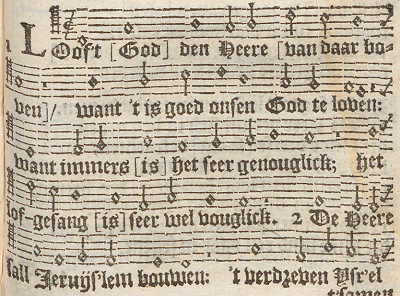 LOoft [God] den Heere [van daar bo-
ven]/ want 't is goed onsen God te loven:
want immers [is] het seer genouglick; het
lof-gesang [is] seer wel vouglick. 2 De Heere
sall Jeruÿs'lem bouwen: 't verdreven Ysr'el